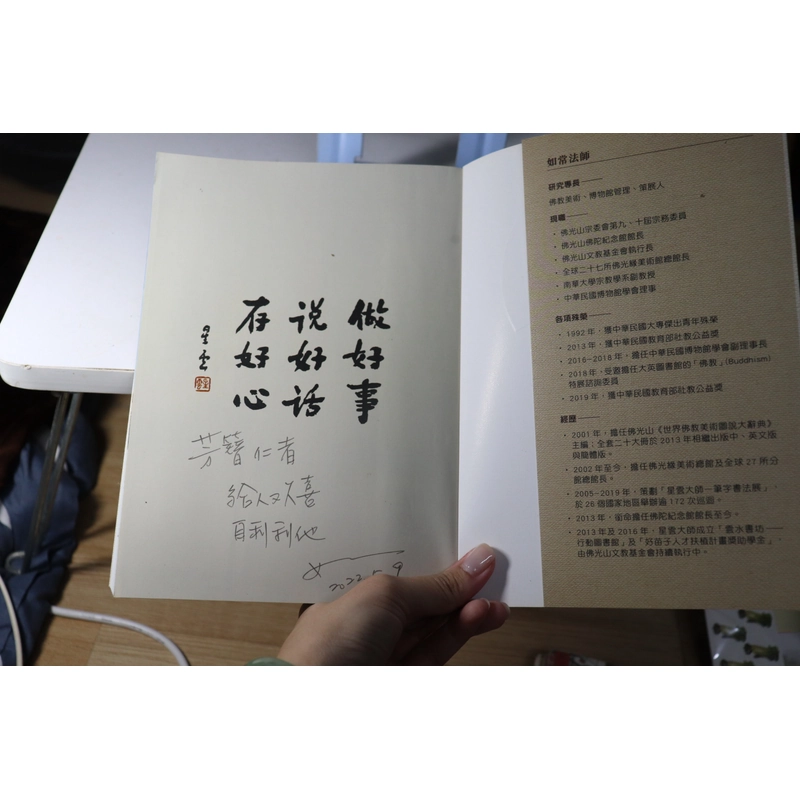 做好事
说好话
存好心
星雲
芳 仁者
給人歡喜
自利利他
2022.5.9
如常法師
研究專長
佛教美術、博物館管理、策展人
現職
・佛光山宗委會第九、十屆宗務委員
・佛光山佛陀紀念館館長
・佛光山文教基金會執行長
・全球二十七所佛光緣美術館總館長
・南華大學宗教學系副教授
・中華民國博物館學會理事
各項殊榮
・1992年，獲中華民國大專傑出青年殊榮
・2013年，獲中華民國教育部社教公益獎
・2016-2018年，擔任中華民國博物館學會副理事長
・2018年，受邀擔任大英圖書館的「佛教」(Buddhism)
特展諮詢委員
・2019年，獲中華民國教育部社教公益獎
經歷
・2001年，擔任佛光山《世界佛教美術圖說大辭典》
主編；全套二十大冊於2013年相繼出版中、英文版
與簡體版。
・2002年至今，擔任佛光緣美術館總館及全球27所分
館總館長。
・2005-2019年，策劃「星雲大師一筆字書法展」，
於26個國家地區舉辦逾172次巡迴。
・2013年，銜命擔任佛陀紀念館館長至今。
・2013年及2016年，星雲大師成立「雲水書坊——
行動圖書館」及「好苗子人才扶植計畫獎助學金」，
由佛光山文教基金會持續執行中。